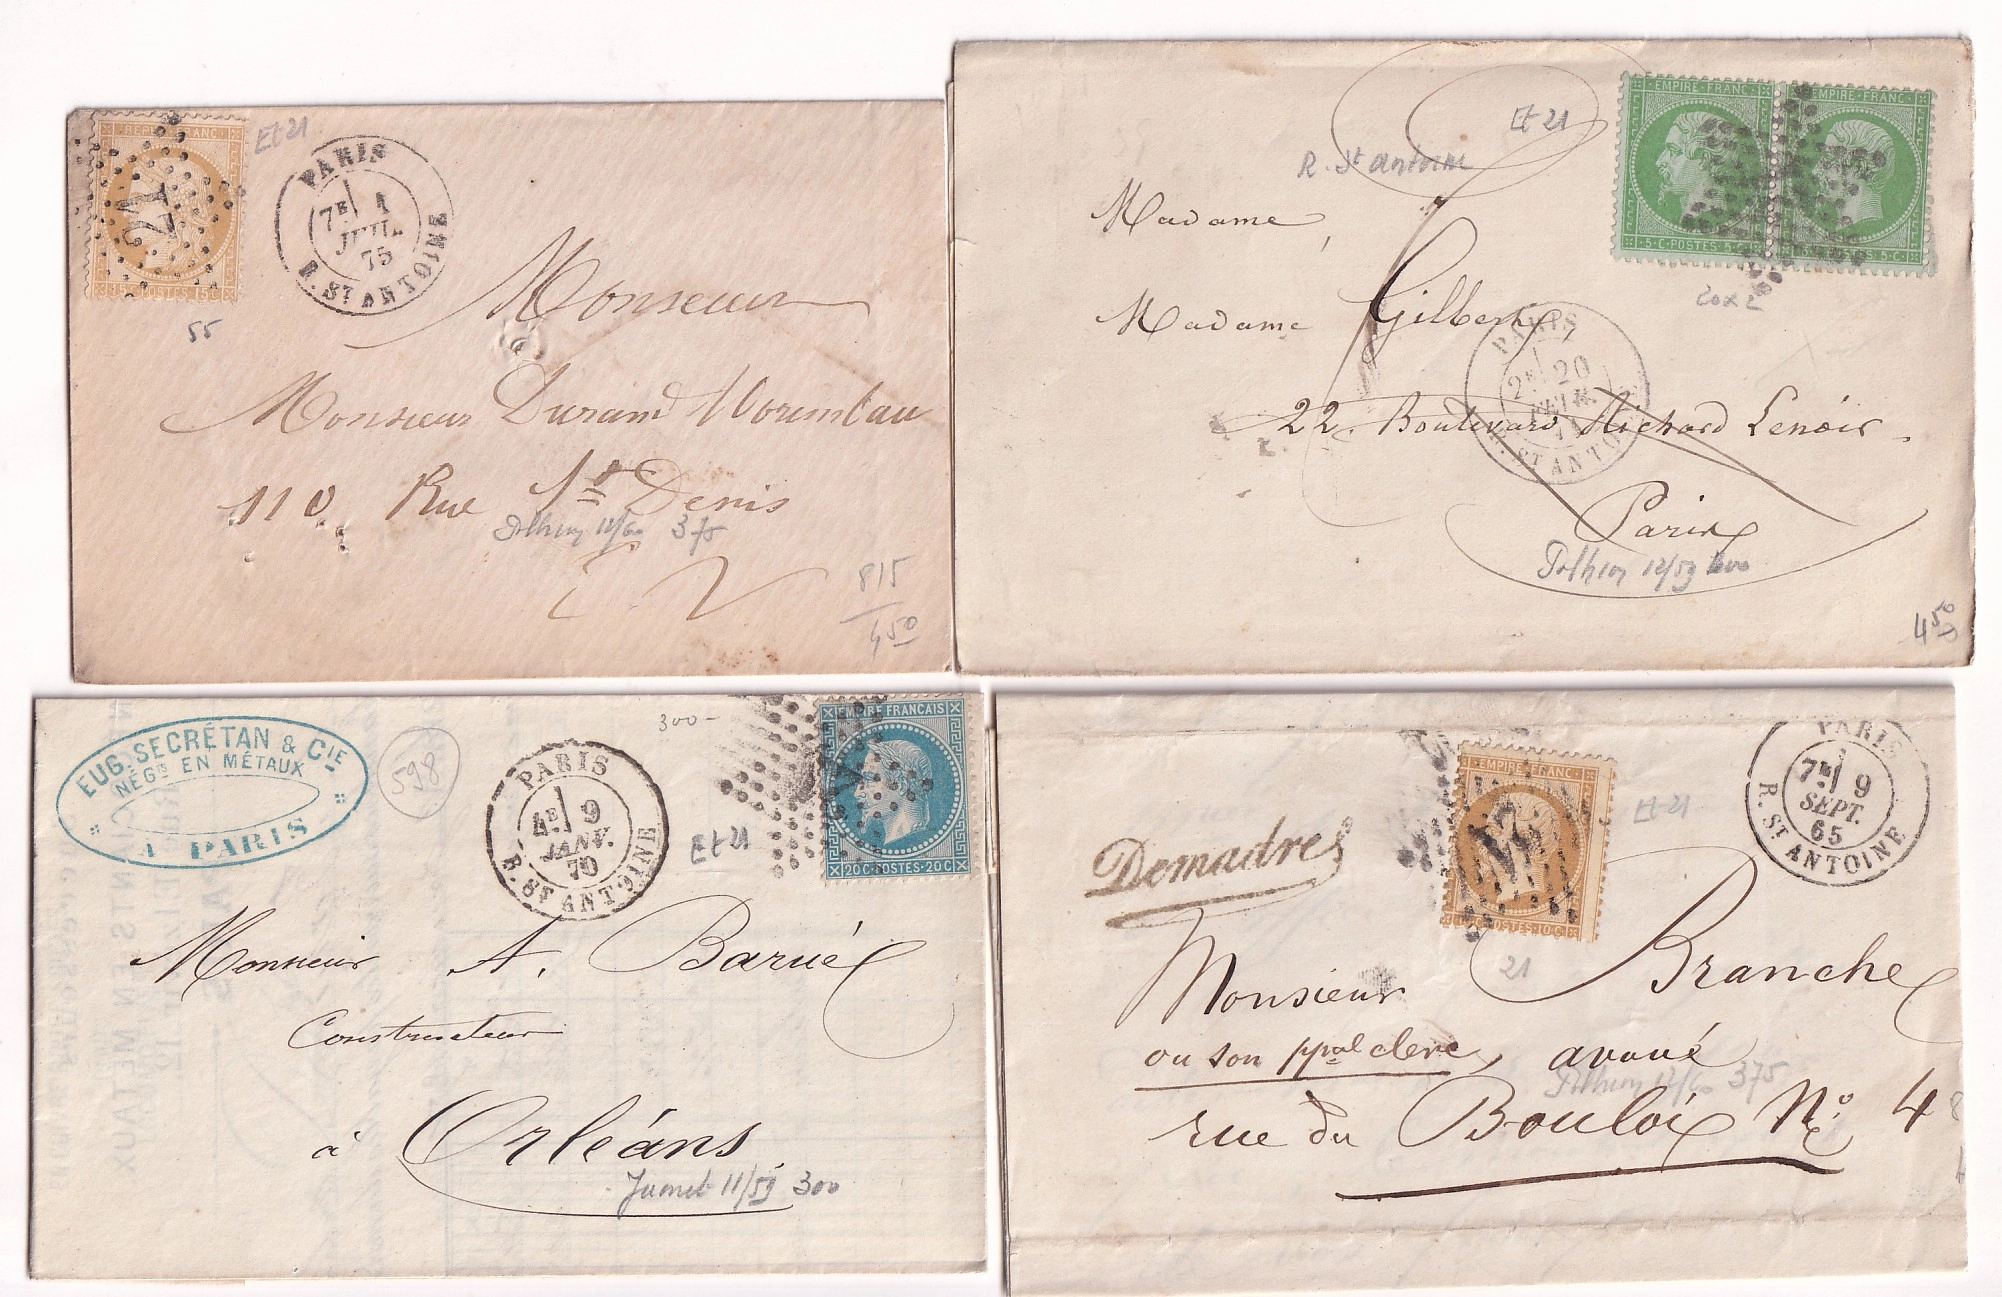 REPUB. FRANC.
21
15 C. POSTES 15 C.
Et 21
55
PARIS
7E 1
JUIL.
75
R. ST ANTOINE
Monsieur
Monsieur Durand
110 Rue St Denis
Pothion 12/60 375
E V
815
450
Et 21
R. St Antoine
EMPIRE FRANC.
EMPIRE FRANC.
5 C. POSTES 5 C.
POSTES 5 C.
20 x 2
Madame,
Madame Gilbert,
PARIS
2E 20
FEVR.
R. ST ANTOINE
22 Boulevard Richard Lenoir
Paris
Pothion 12/59
450
EUG. SECRÉTAN & CIE
NÉGTS EN MÉTAUX
A PARIS
598
300-
PARIS
4E 9
JANV.
70
R. ST ANTOINE
Et 21
EMPIRE FRANÇAIS
20 C. POSTES. 20 C.
Monsieur A. Barué
Constructeur
à Orléans
Jamet 11/59 300
Demadre
EMPIRE FRANC.
21
POSTES. 10 C.
Et 21
21
PARIS
7E 9
SEPT.
65
R. ST ANTOINE
Monsieur Branche
ou son ppal clerc, avoué
Pothion 12/60 375
rue du Bouloi No 4